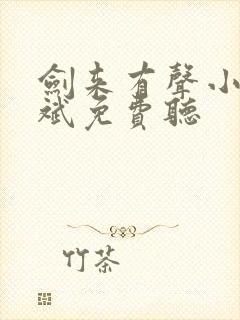 劍來有聲小
斌免費聽
竹茶